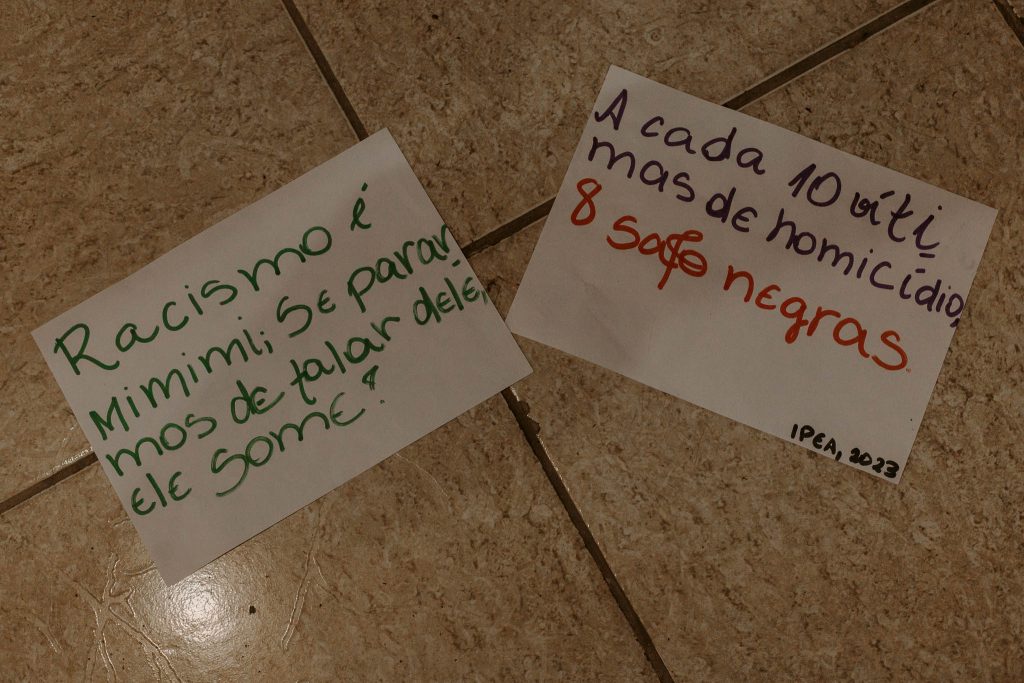 Racismo é
mimimi; se parar
mos de falar dele,
ele some!
A cada 10 víti
mas de homicídio,
8 são negras.
IPEA, 2023